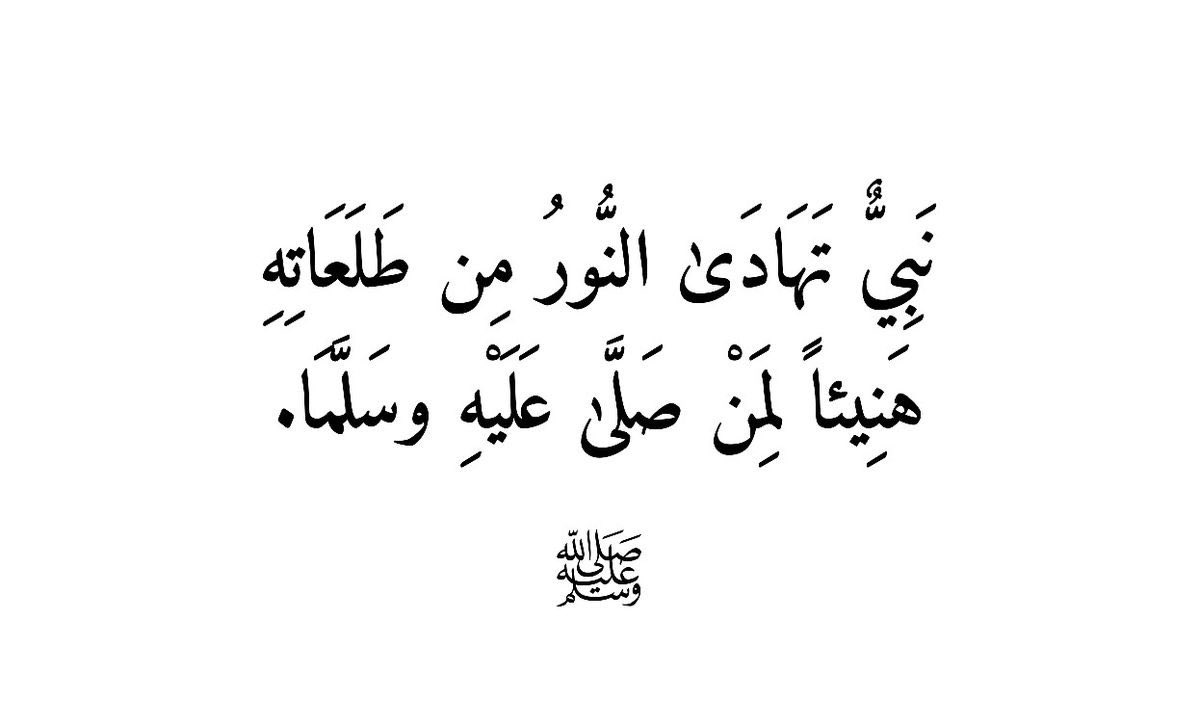 نَبِيٌّ تَهَادَىٰ النُّورُ مِن طَلَعَاتِهِ
هَنِيئاً لِمَنْ صَلَّىٰ عَلَيْهِ وسَلَّمَا.
صَلَى الله
عليه
وسلم